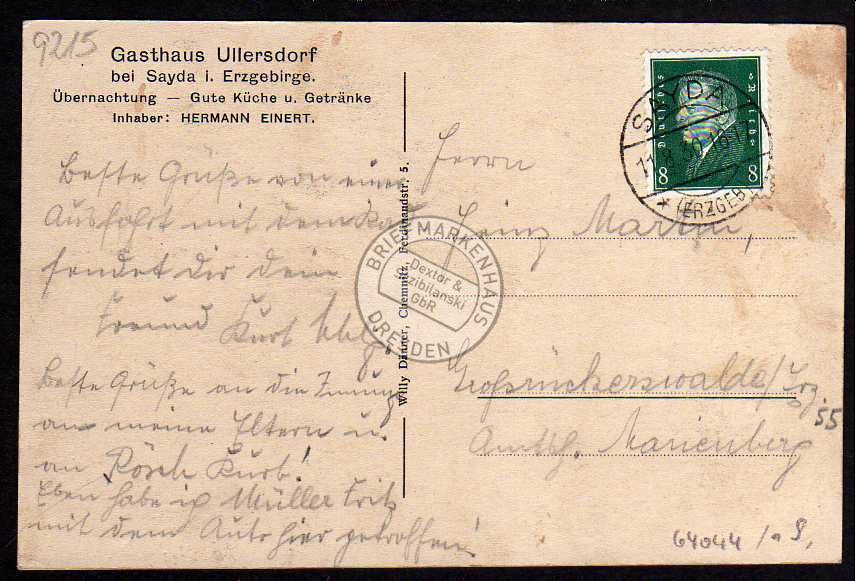 9215
Gasthaus Ullersdorf
bei Sayda i. Erzgebirge.
Übernachtung — Gute Küche u. Getränke
Inhaber: HERMANN EINERT.
Beste Grüße von einer
Ausfahrt mit dem Rad
sendet dir dein
Freund Kurt
Beste Grüße an die Innung
an meine Eltern u.
an Rösch Kurt!
Eben habe ich Müller Fritz
mit dem Auto hier getroffen!
Willy Dänner, Chemnitz, Ferdinandstr. 5.
Deutsches Reich
8 8
SAYDA
11.8.30.16-17
* (ERZGEB)
Herrn
Heinz Martin,
Großrückerswalde/Erz.
Amtsh. Marienberg
55
64044/a 9,
BRIEFMARKENHAUS
Dextor &
Szibilanski
GbR
DRESDEN